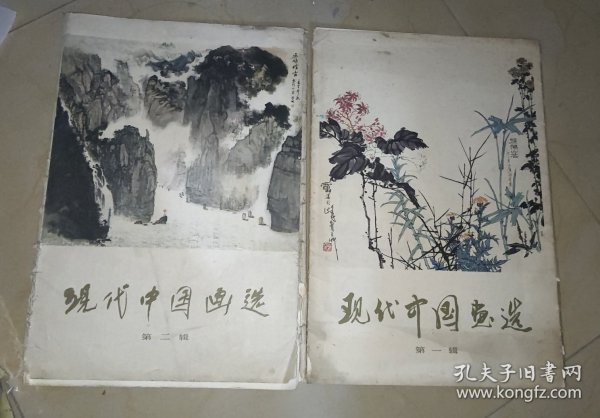 现代中国画选
第二辑
现代中国画选
第一辑
孔夫子旧书网
www.kongfz.com